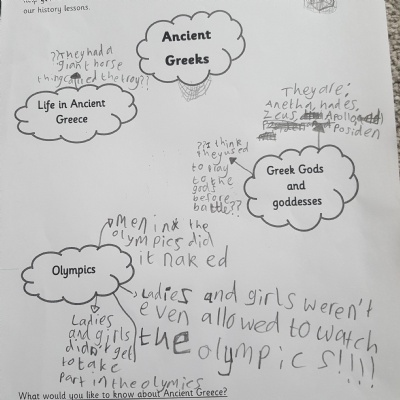 our history lessons.
Ancient
Greeks
??They had a
giant horse
thing called the troy??
Life in Ancient
Greece
They are;
Anetha, hades,
Zeus, Apollo
Posiden
??I think
they used
to pray
to the
gods
before
battle??
Greek Gods
and
goddesses
men in the
olympics did
it naked
Olympics
Ladies and girls weren't
even allowed to watch
the olympics!!!!
Ladies
and girls
didn't get
to take
part in the olymics
What would you like to know about Ancient Greece?